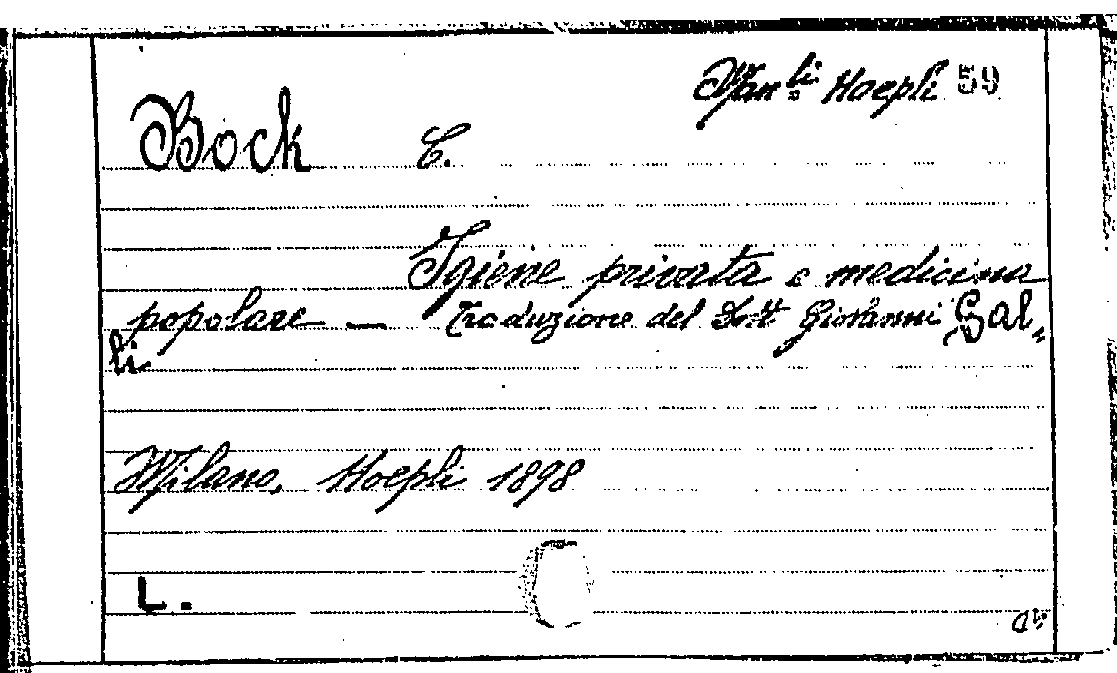 Man.li Hoepli 59
Bock C.
Igiene privata e medicina
popolare — Traduzione del Dott Giovanni Gal-
li
Milano, Hoepli 1898
L.